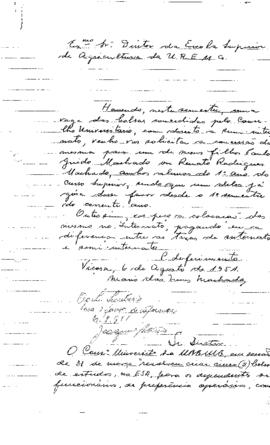 Exmo Sr. Diretor da Escola Superior
de Agricultura da U.R.E.M.G.
Havendo, neste semestre, uma
vaga das bolsas concedidas pelo Con-
selho Universitário, com direito a
mato, venho vos solicitar a concessão da
mesma para um de meus filhos Paulo
Guido Machado ou Renato Rodrigues
Machado, ambos alunos do 1º ano do
Curso Superior, sendo que um deles já
goza desse favor desde o 1º semestre
do corrente ano.
Outrossim, eu peço a colocação do
mesmo no Internato, pagando eu a
diferença entre as taxas de externato
e semi-internato.
P. deferimento
Viçosa, 6 de Agosto de 1951.
Machado
Sr. Diretor
O Cons. Universit. da UREMG, em sessão
de 31 de março resolveu criar cinco (5) bolsas
de estudos, na ESA, para os dependentes de
funcionários, de preferência operários, com